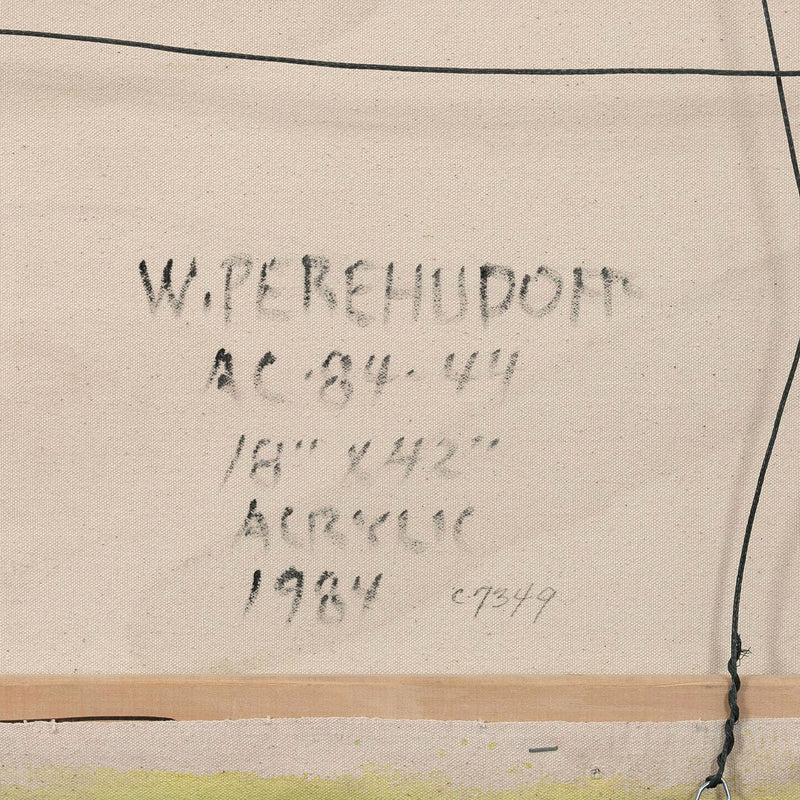 W. PEREHUDOFF
AC-84-44
18" X 42"
ACRYLIC
1984 C7349